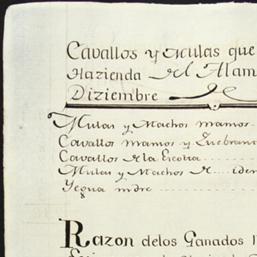 Cavallos y Mulas que
Hazienda del Alam
Diziembre de
Mulas y Machos Mamos
Cavallos Mamos y Quebran
Cavallos de la Escolta
Mulas y Machos de iden
Yegua mdre
Razon delos Ganados